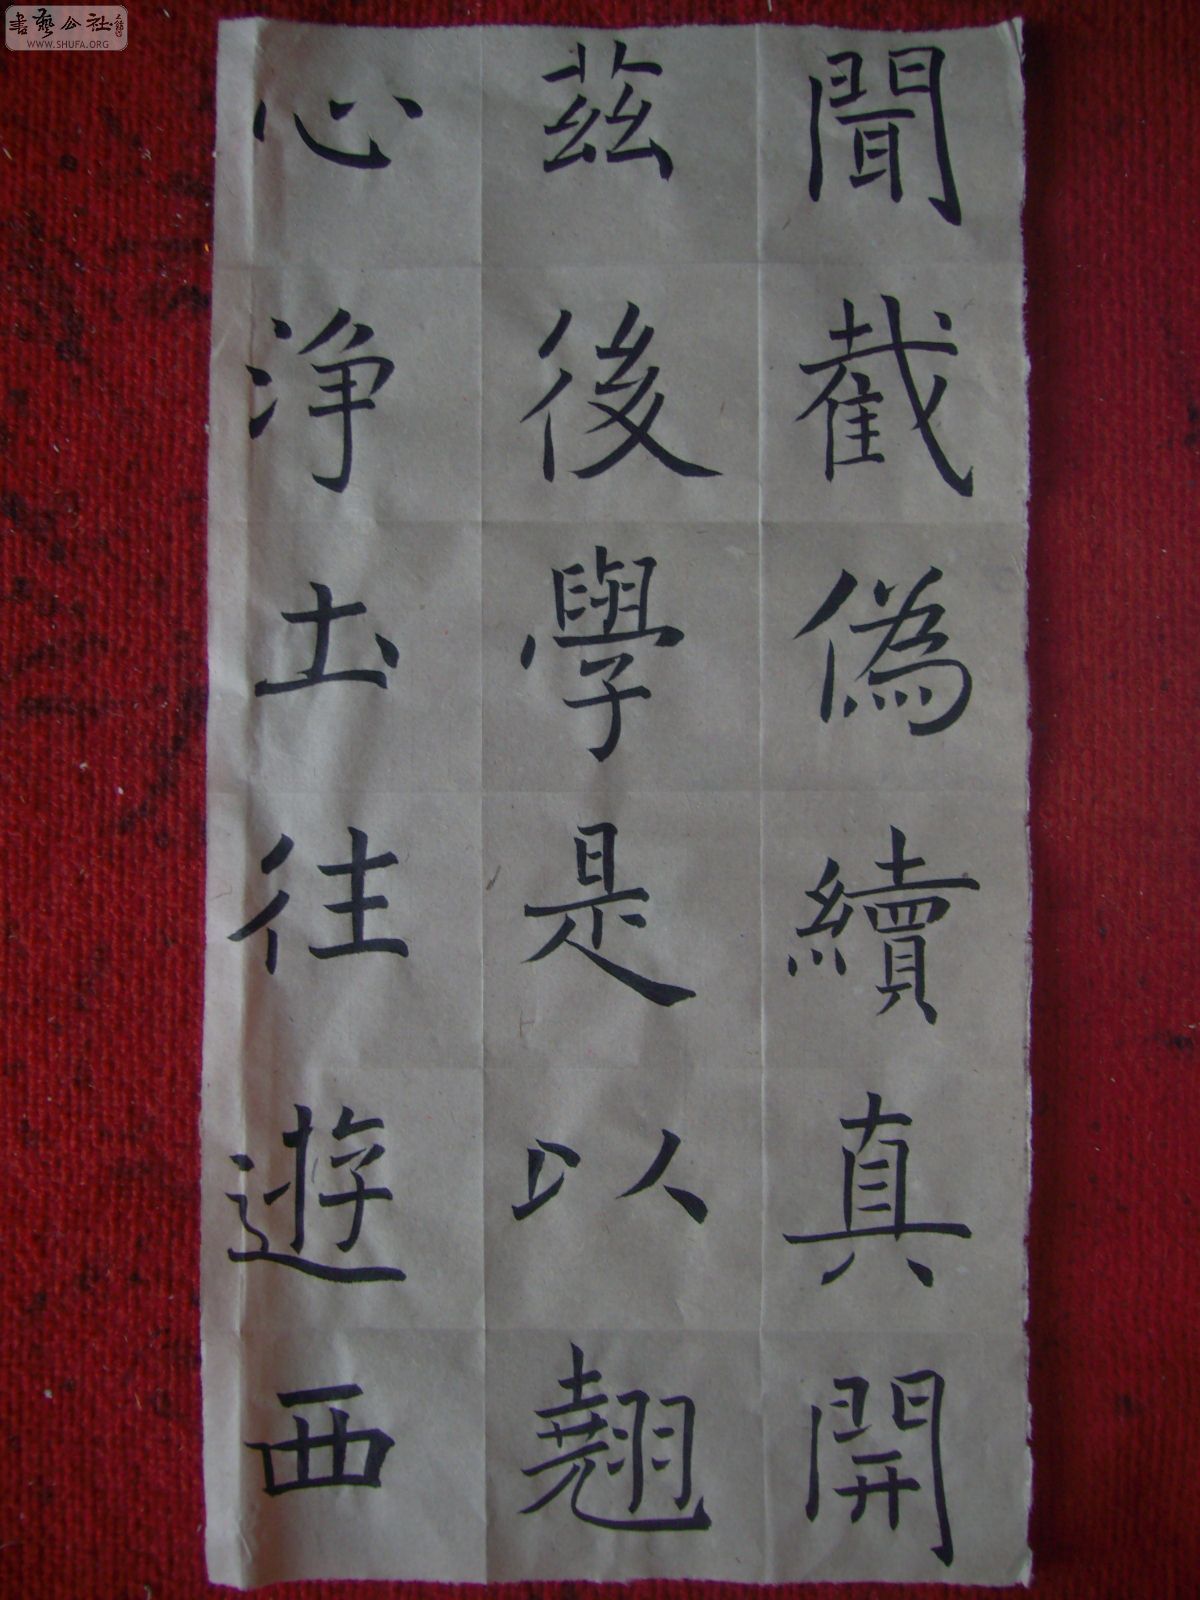 聞截偽續真開
茲後學是以翹
心淨土往遊西
書藝公社
WWW.SHUFA.ORG